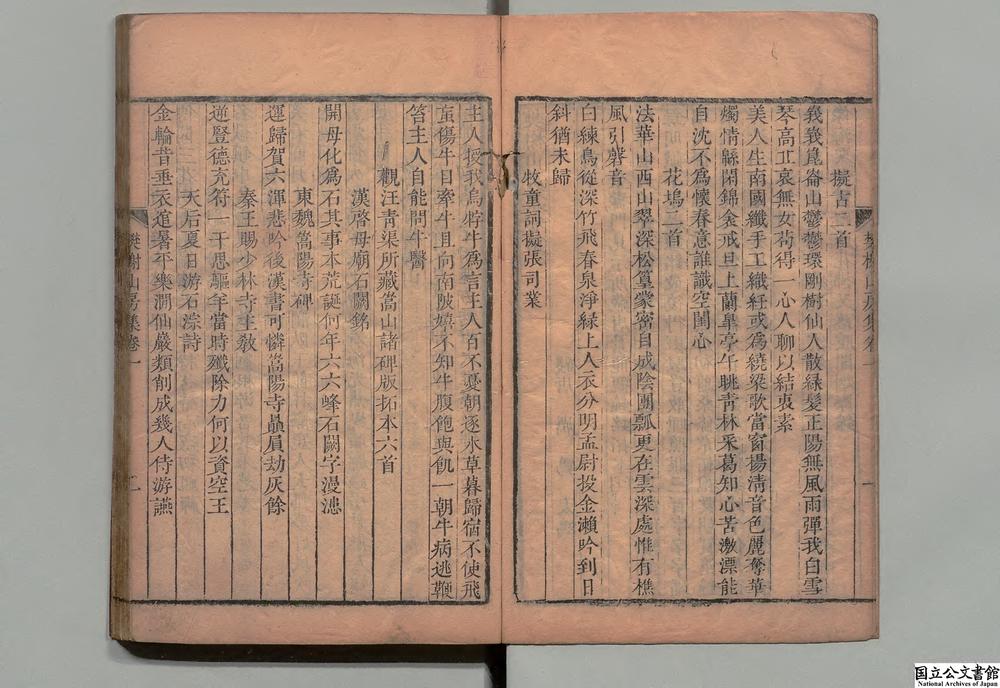 樊榭山房集卷一
一
擬古二首
峩峩崑崙山鬱鬱環剛樹仙人散緑髮正陽無風雨彈我白雪
琴高丘哀無女苟得一心人聊以結衷素
美人生南國纖手工織紝或爲繞梁歌當窗揚清音色麗奪華
燭情縣閑錦衾戒旦上蘭皐亭午眺靑林采葛知心苦激漂能
自沈不爲懷春意誰識空閨心
花塢二首
法華山西山翠深松篁蒙密自成陰團瓢更在雲深處惟有樵
風引磬音
白練鳥從深竹飛春泉淨緑上人衣分明孟尉投金瀨吟到日
斜猶未歸
牧童詞擬張司業
主人授我烏牸牛爲言主人百不憂朝逐水草暮歸宿不使飛
䖟傷牛目牽牛且向南陂嬉不知牛腹飽與飢一朝牛病逃鞭
笞主人自能問牛醫
觀汪靑渠所藏嵩山諸碑版拓本六首
漢啓母廟石闕銘
開母化爲石其事本荒誕何年六六峰石闕字漫漶
東魏嵩陽寺碑
運歸賀六渾悲吟後漢書可憐嵩陽寺贔屓劫灰餘
秦王賜少林寺主敎
逆豎德充符一千思驅年當時殲除力何以資空王
天后夏日游石淙詩
金輪昔垂衣逭暑平樂澗仙巖類削成幾人侍游讌
樊榭山房集卷一
二
国立公文書館
National Archives of Japan